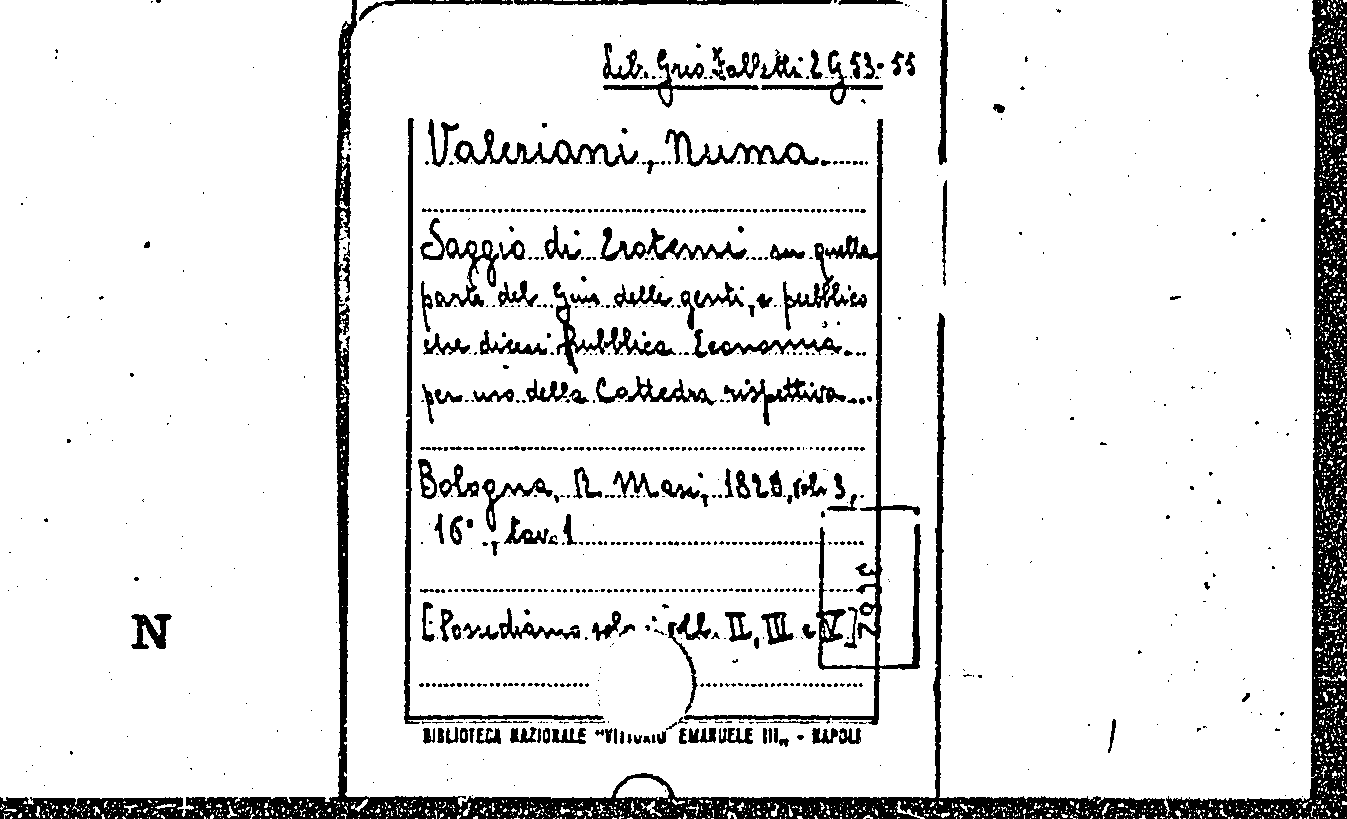 Lib. Gris Falletti 2 G 53-55
Valeriani, Numa.
Saggio di Erotemi su quella
parte del Gius delle genti, e pubblico
che dicesi pubblica Economia
per uso della Cattedra rispettiva...
Bologna, R. Masi, 1828, voll. 3,
16°, tav. 1
[Possediamo solo i voll. II, III e V]
BIBLIOTECA NAZIONALE "VITTORIO EMANUELE III" - NAPOLI
N